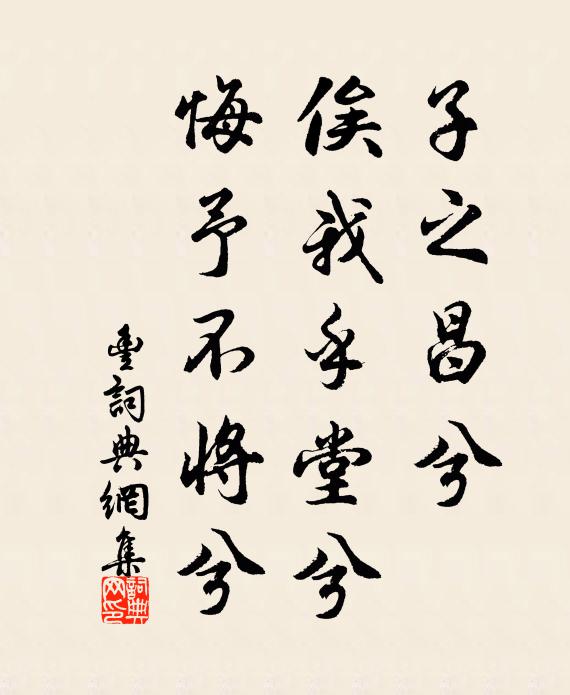 子之昌兮
俟我乎堂兮
悔予不將兮
書詞典網集
詞典网印